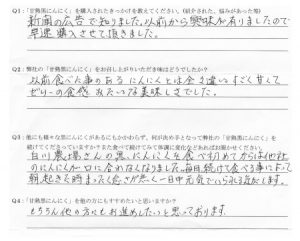 Q1:「甘熟黒にんにく」を購入されたきっかけを教えてください。(紹介された、悩みがあった等)
新聞の広告で知りました。以前から興味が有りましたので
早速購入させて頂きました。
Q2:弊社の「甘熟黒にんにく」をお召し上がりいただき味はどうでしたか?
以前食べた事のあるにんにくとは全き違いすごく甘くて
ゼリーの食感みたいな美味しさでした。
Q3:他にも様々な黒にんにくがあるにもかかわらず、何が決め手となって弊社の「甘熟黒にんにく」を
続けてくださっていますか?また食べて続けてみて体調に変化などあればお聞かせください。
白川農場さんの黒にんにくを食べ初めてからは他社
のにんにくが口に合わなくなりました。毎日続けて食べる事によって
朝起きた時まったく怠さが無く一日中元気でいられる気がします。
Q4:「甘熟黒にんにく」を他の方にもすすめたいと思いますか?
もちろん他の方にもお進めしたいと思っております。